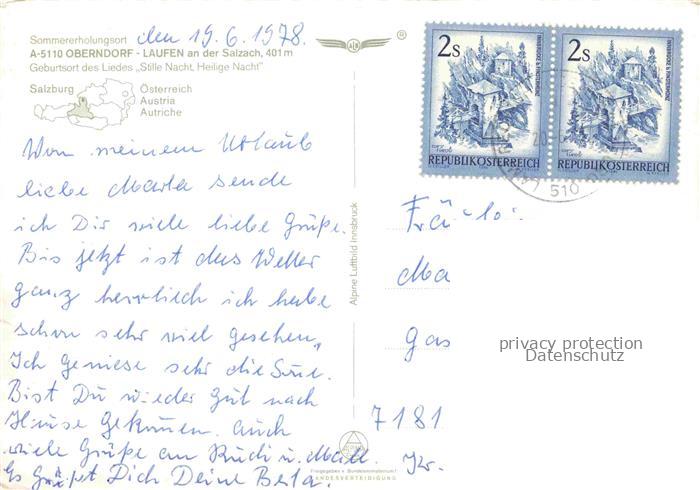 Sommererholungsort
den 19.6.1978.
A-5110 OBERNDORF - LAUFEN an der Salzach, 401 m
Geburtsort des Liedes „Stille Nacht, Heilige Nacht"
Salzburg Österreich
Austria
Autriche
Von meinem Urlaub
liebe Marta sende
ich Dir viele liebe Grüße.
Bis jetzt ist das Wetter
ganz herrlich ich habe
schon sehr viel gesehen,
Ich geniese sehr die
Bist Du wieder gut nach
Hause gekommen. auch
viele Grüße an Rudi u.
Es Grüßt Dich Deine Berta.
Alpine Luftbild Innsbruck
Freigegeben v. Bundesministerium f.
LANDESVERTEIDIGUNG
2s
REPUBLIK ÖSTERREICH
2s
REPUBLIK ÖSTERREICH
510
Frä
Ma
Gas
privacy protection
Datenschutz
7181
Kr.